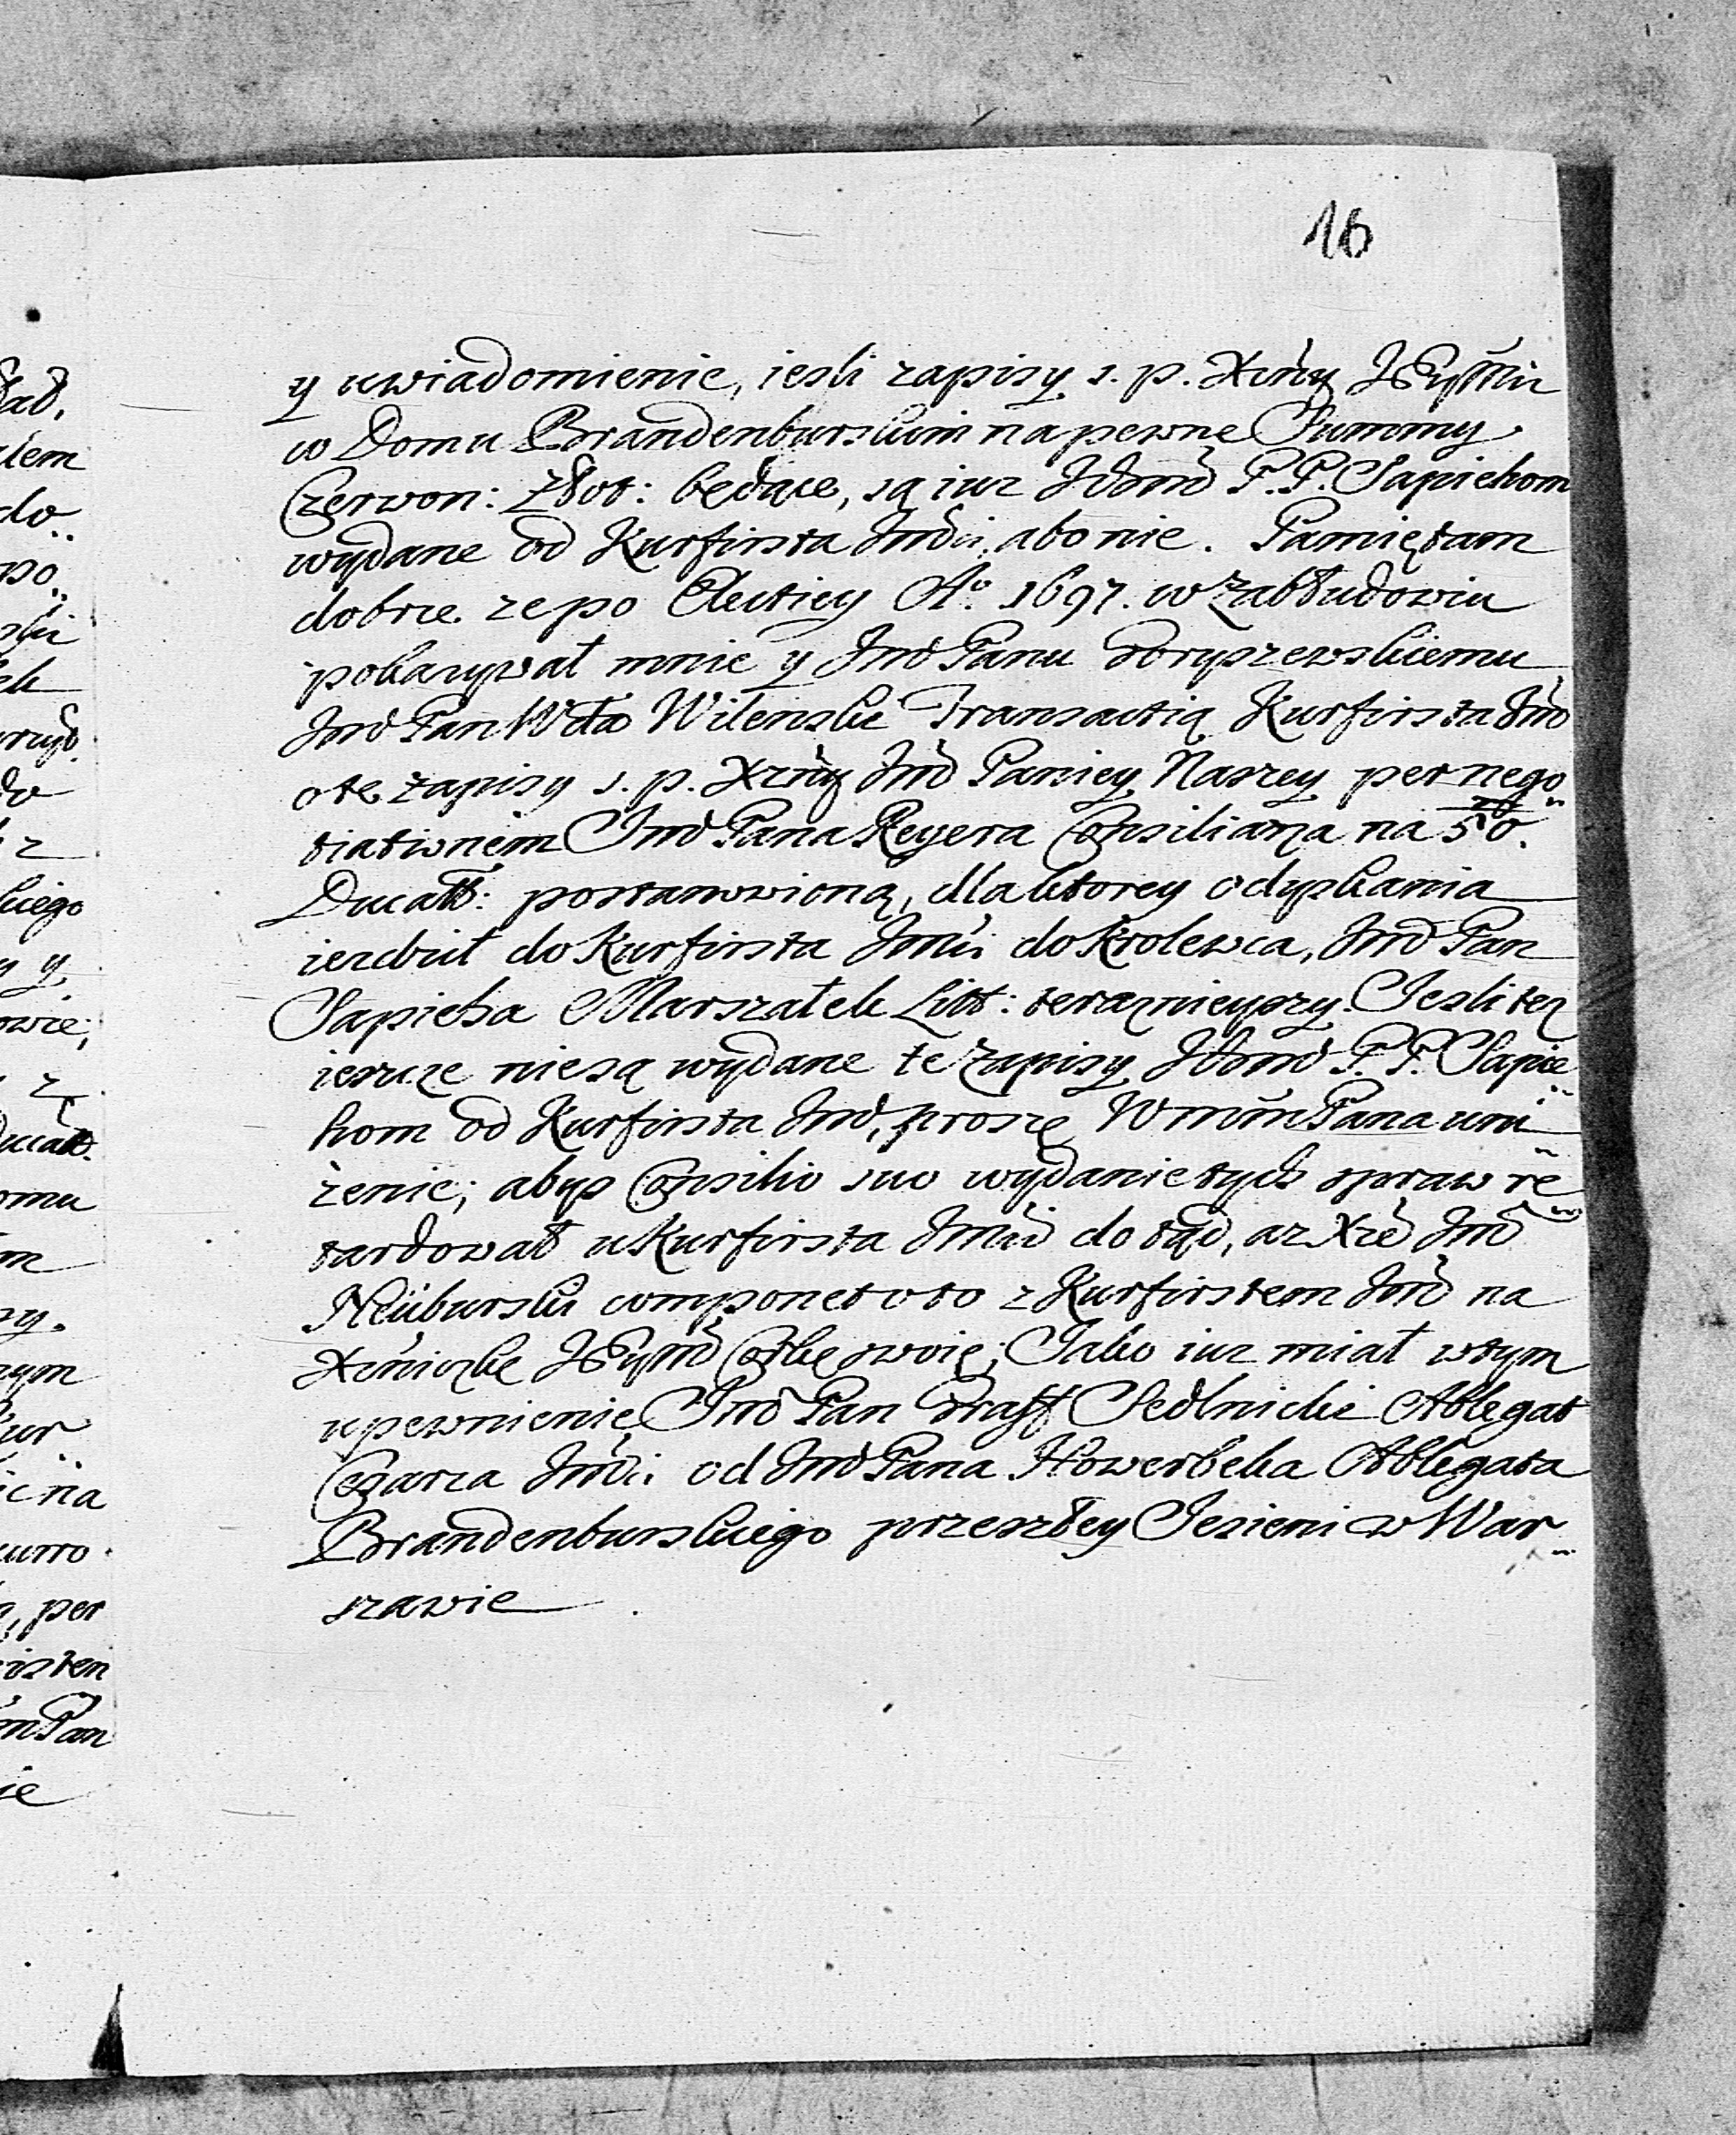 16
y uwiadomienie, iesli zapisy s. p. Xżny
w Domu Brandenburskim na pewne Summy
Czerwon: Złot: będące, są iuz Ichmć P. P. Sapiehom
wydane od Kurfirsta Jmći, abo nie. Pamiętam
dobrze ze po Electiey Aº. 1697. w Zabłudowiu
pokazywał mnie y Jmć Panu Gryszewskiemu
Jmć Pan Wda Wilenski Transactią Kurfirsta Jmć
o te zapisy s. p. Xżny Jmć Paniey Naszey per nego
tiationem Jmć Pana Reyera Consiliarza na 50.
Ducatt: postanowioną, dla ktorey odyskania
iezdził do Kurfirsta Jmći do Krolewca, Jmć Pan
Sapieha Marszałek Litt: teraznieyszy. Jesli tez
ieszcze nie są wydane te zapisy Ichmć P. P. Sapie
hom od Kurfirsta Jmć, proszę Wmm Pana uni
zenie; abys Consilio suo wydanie tych spraw re
tardował u Kurfirsta Jmći do tąd, az Xże Jmć
Neüburski componet oto z Kurfirstem Jmć na
Xżniczkę Jeymć Corkę swoię; Jako iuz miał w tym
upewnienie Jmć Pan Graff Sedlnicki Ablegat
Cesarza Jmći od Jmć Pana Howerbeka Ablegata
Brandenburskiego przeszłey Jesieni w War
szawie